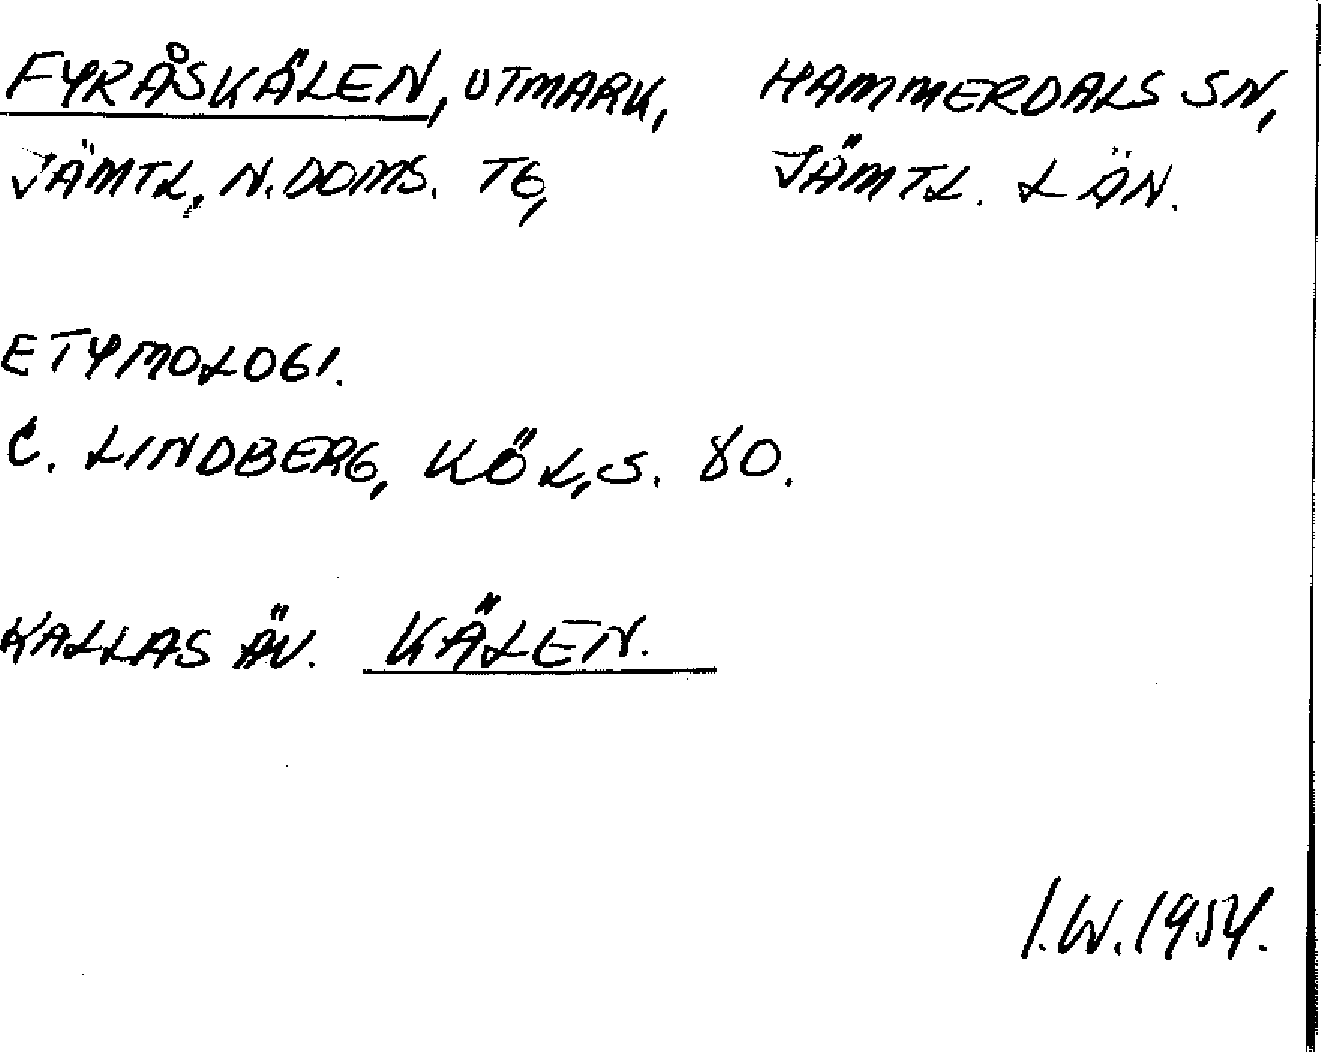 FYRÅSKÄLEN, UTMARK, HAMMERDALS SN,
JÄMTL, N. DOMS. TG, JÄMTL. LÄN.
ETYMOLOGI.
C. LINDBERG, KÖL, S. 80.
KALLAS ÄV. KÄLEN.
I.W. 1954.